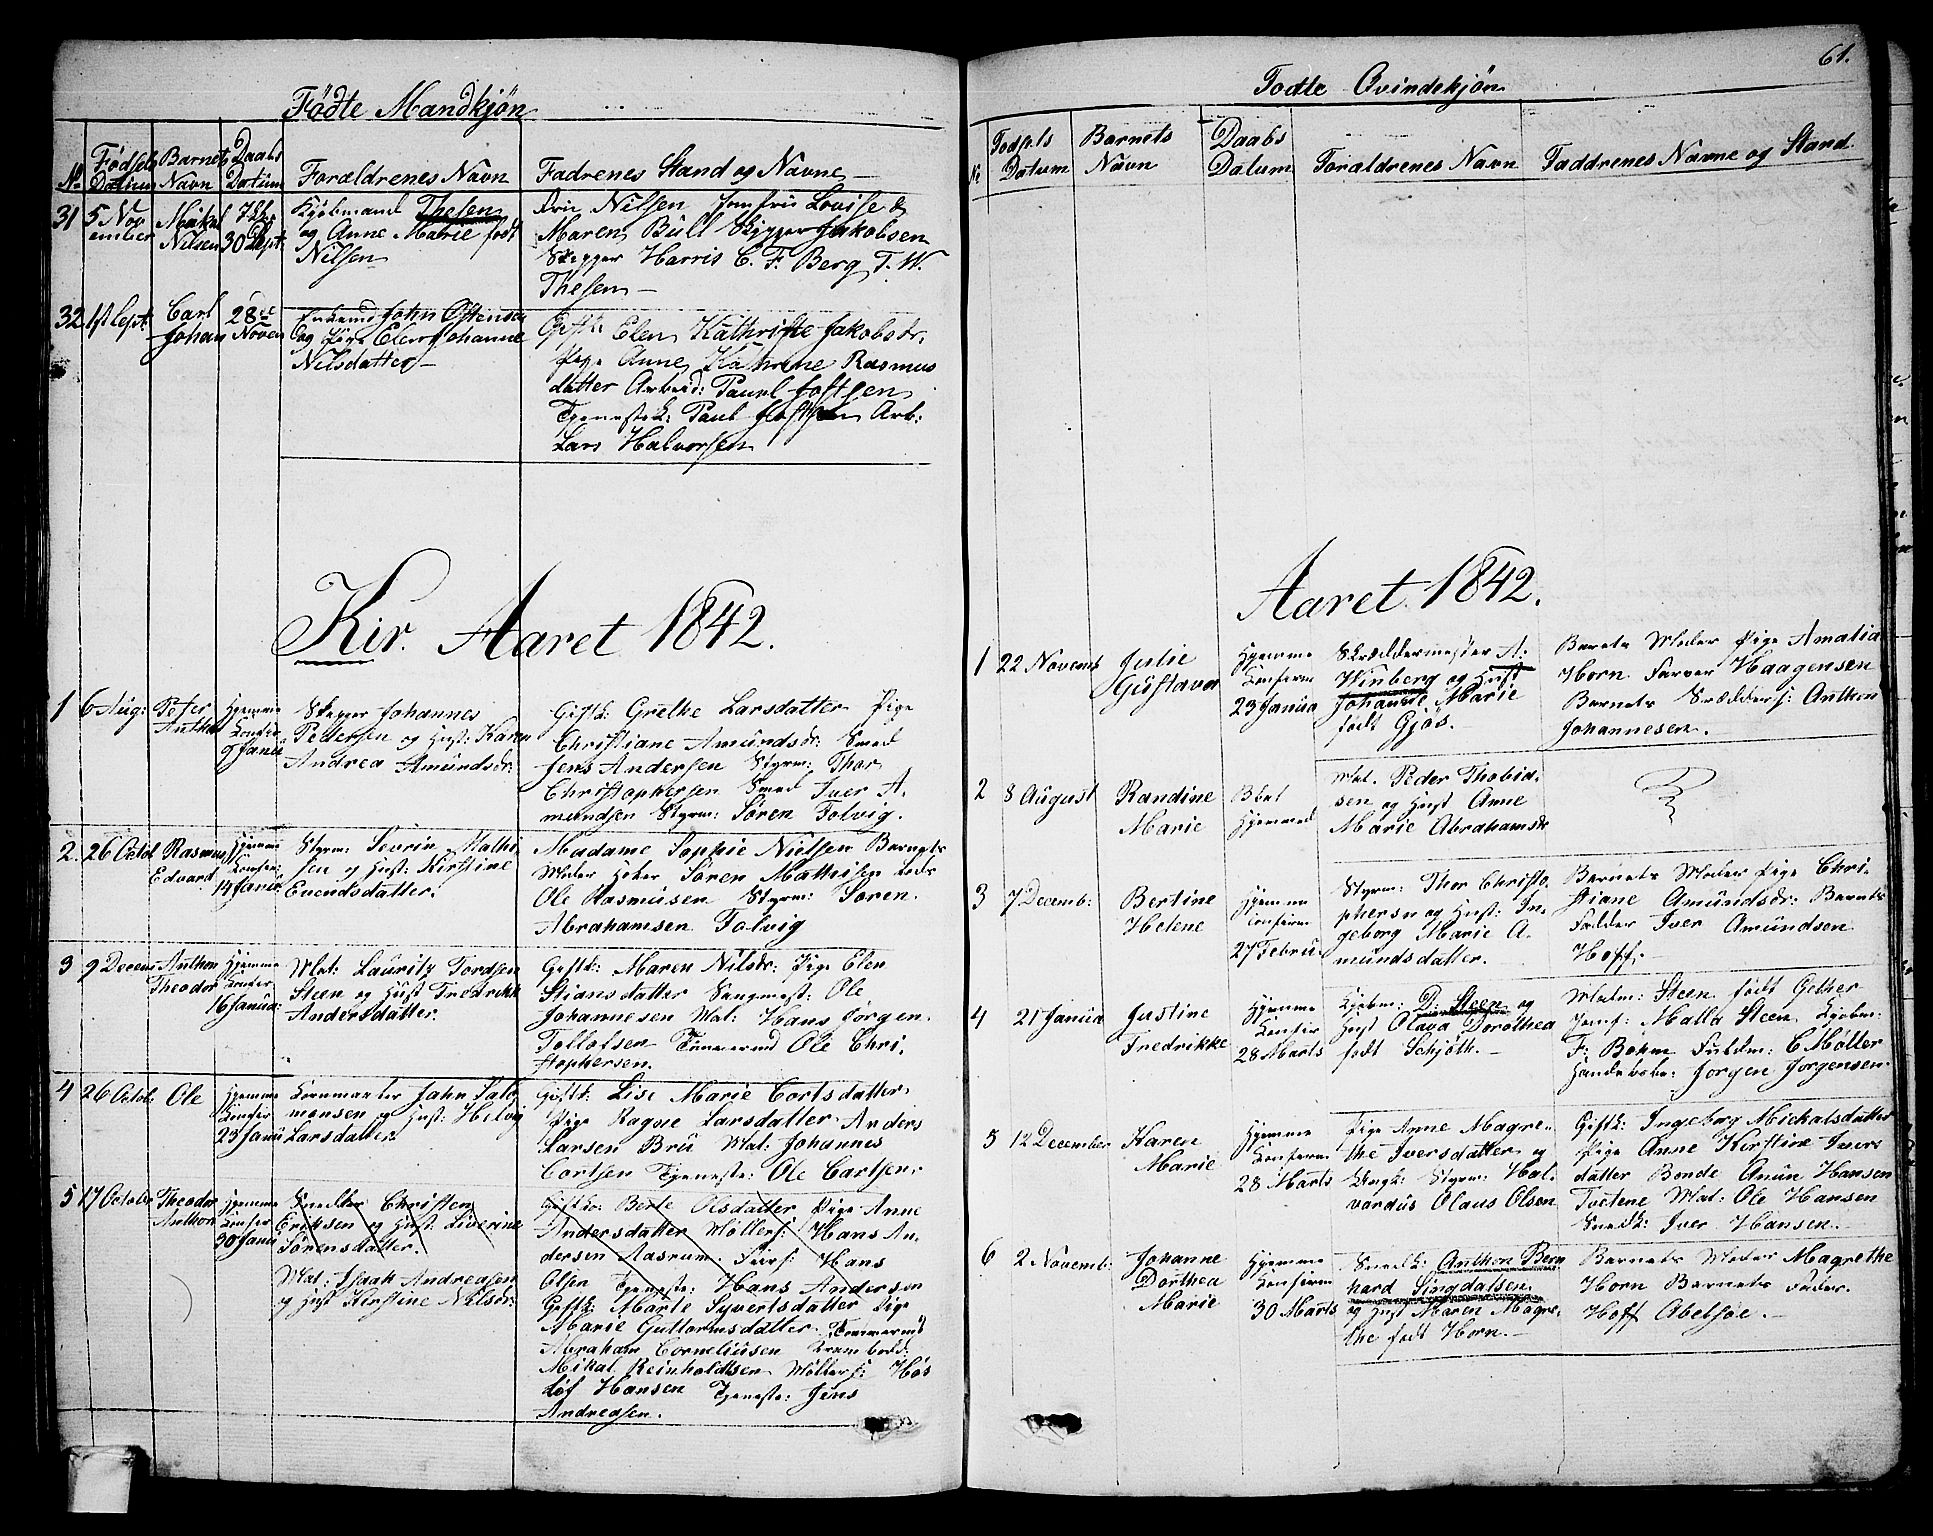 Fødte Mandkjön
No
Fødsels Datum
Barnets Navn
Daabs Datum
Forældrenes Navn
Fadrenes Stand og Navne
31
5 Nov
ember
Mikal
Nilsen
30 Sept.
Kjøbmand Thesen
og Anne Marie født
Nilsen
Fru Nilsen Jomfru Lovise &
Maren Bull Skipper Jakobsen
Skipper Harris C. F. Berg T. W.
Thesen
32
1st Sept
Carl
Johan
28de
Noven
John Ostensen
og Pige Elen Johanne
Nilsdatter
Gftk: Elen Kathrine Jakobsdr.
Pige Anne Kathrine Rasmus
datter Arbeid: Pauel Joftsen
Tjenestek: Paul Arb:
Lars Halvorsen
Kir. Aaret 1842.
1
6 Aug:
Peter
Anthon
Hjemme
Confir
9 Janu
Skipper Johannes
Pedersen og Hust: Karn
Andrea Amundsdr:
Giftk: Grethe Larsdatter Pige
Christiane Amundsdr: Smed
Jens Andersen Styrm: Thor
Christophersen Smed Iver A.
mundsen Styrm: Søren Folvig.
2.
26 Octob
Rasmus
Edvard
Hjemme
Confir:
14 Janu:
Styrm: Sevrin Mathi
sen og Hust: Kirstine
Enendsdatter.
Madame Sophie Nielsen Barnets
Moder Høker Sören Mathisen Lods
Ole Rasmusen Styrm: Sören.
Abrahamsen Folvig
3
9 Decem
Anthon
Theodor
Hjemme
Confir
16 Janua:
Mat: Lauritz Tordsen
Steen og Hust Fredrikk
Andersdatter.
Giftk: Maren Nilsdr: Pige Elen
Stiansdatter Sangmest: Ole
Johannesen Mat: Hans Jørgen.
Tollofsen Tømmermd Ole Chri.
stophersen.
4
26 Octob:
Ole
Hjemme
Confir
23 Janu
Kornmaaler John Salo
monsen og Hust: Helvig
Larsdatter.
Giftk: Lise Marie Cortsdatter.
Pige Ragne Larsdatter Anders
Larsen Brü Mat: Johannes
Cortsen Tjeneste: Ole Carlsen.
5
17 Octobr
Theodor
Anthon
Hjemme
Confir
30 Janu
Snedker Christen
Eriksen og Hust: Liverine
Sørensdatter.
Mat: Isaak Andreasen
og Hust Kirstine Nilsdr:
Giftko: Berte Olsdatter Pige Anne
Andersdatter Møllers: Hans An.
dersen Aasrum. Hans
Olsen Tjeneste: Hans Andersen
Giftk: Marte Syvertsdatter Pige
Marie Guttormsdatter Tømmermd
Abraham Corneliusen Krambodd:
Mikal Reinholdtsen Møllers: Hös
Löf Hansen Tjeneste: Jens
Andreasen.
61.
Födte Qvindekjön
No
Fødsels Datum
Barnets Navn
Daabs Datum
Foraldrenes Navn
Faddrenes Navne og Stand.
Aaret 1842.
1
22 Novemb
Julie
Gustava
Hjemme
Confirm
23 Janua
Skræddermester A.
Winberg og Hust
Johanne Marie
født Gjös.
Barnets Moder Pige Amalia
Horn Farver Haagensen
Barnets Skrædders: Anthon
Johannesen.
2
8 August
Randine
Marie
Döbt
Hjemmed
Mat. Peder Thobia.
sen og Hust Anne
Marie Abrahamsdr
3
7 Decemb:
Bertine
Helene
Hjemme
Confirm
27 Februa
Styrm: Thor Christo.
phersen og Hust: In.
geborg Marie A.
mundsdatter.
Barnets Moder Pige Chri.
stiane Amundsdr: Barnets
Fadder Iver Amundsen
Hoff.
4
21 Janua
Justine
Fredrikke
Hjemme
Confir
28 Marts
Kjøbm: D. Steen og
Hust Olava Dorothea
født Schjöth.
Madm: Steen født Gether
Jomf: Malla Steen Kjøbm:
F: Bøhm Fuldm: C Møller
Handelsbet: Jorgen Jorgensen.
5
12 December
Karen
Marie
Hjemme
Confirm
28 Marts
Pige Anne Magre.
the Iversdatter og
Ungk: Styrm: Hal.
vardus Olaus Olsen
Giftk: Ingeborg Mickalsdatter
Pige Anne Kirstine Ivers
datter Bonde Anün Hansen
Toctene Mat: Ole Hansen
Snedk: Iver Hansen.
6
2 Novemb:
Johanne
Dorthea
Marie
Hjemme
Confirm
30 Marts
Snedk: Anthon Bern
hard Lingdalsen
og Hust Maren Magre.
the født Horn.
Barnets Moder Magrethe
Horn Barnets Fader.
Hoff Abelsöe.